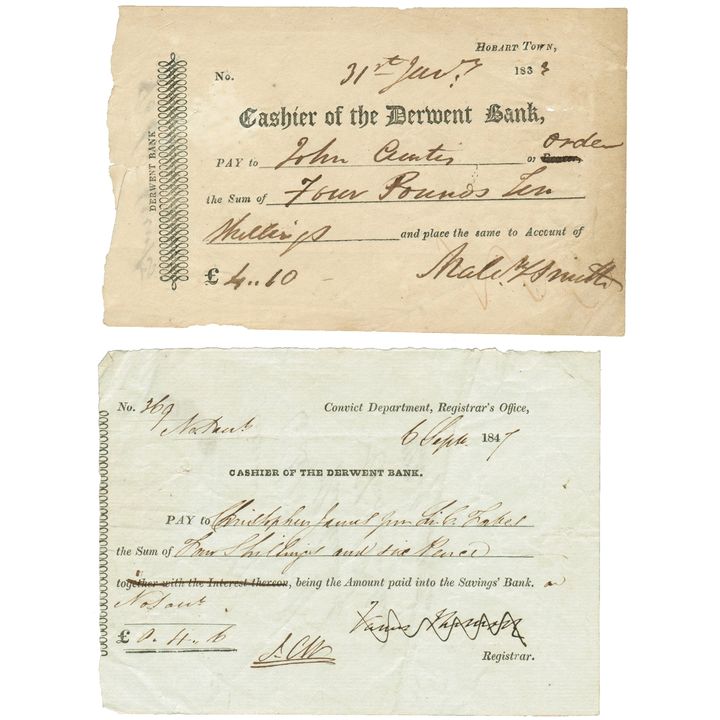 DERWENT BANK
HOBART TOWN,
No. 31st Jany 1833
Cashier of the Derwent Bank,
order
PAY to John Curtis or Bearer,
the Sum of Four Pounds Ten
Shillings and place the same to Account of
£ 4..10 Malc. Smith
No. 369 Convict Department, Registrar's Office,
6 Sept. 1847
CASHIER OF THE DERWENT BANK.
PAY to Christopher James
the Sum of Four Shillings and six Pence
together with the Interest thereon, being the Amount paid into the Savings' Bank. on
£ 0. 4.. 6
Registrar.